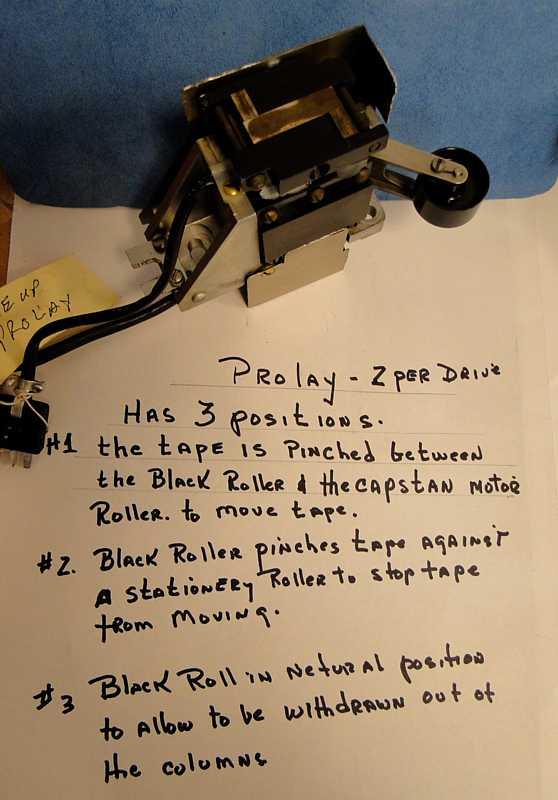 E UP
PROLAY
PROlAY - 2 PER DRIVE
HAS 3 POSITIONS.
#1 the tAPE IS PINChED between
the BlACK Roller & the CAPSTAN MOTOR
Roller. to move tape.
#2. BlACK Roller pinches tape AGAINST
A stAtIONERY Roller to stop tape
from MOVING.
#3 BlACK Roll IN NETURAl position
to Allow to be WIthDRAWN out of
the columns